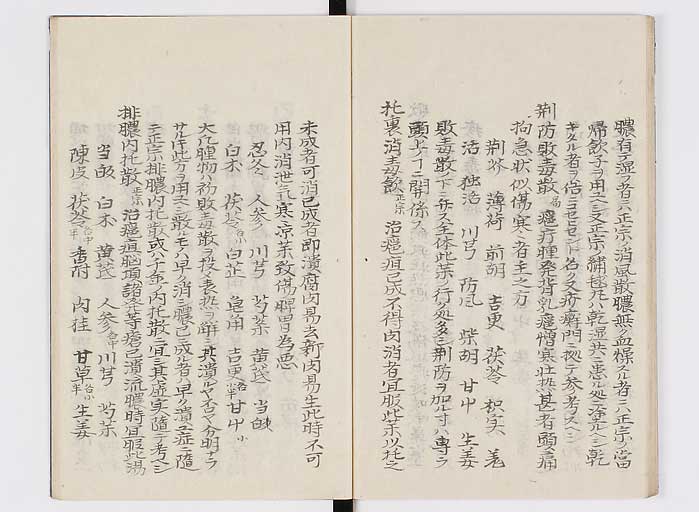 膿有テ湿ヲ者ニハ正宗ノ消風散膿無ク血燥スル者ニハ正宗ノ當
帰飲子ヲ用ユヘシ又正宗繍毬丸ハ乾湿共ニ患ル処ニ塗ルヘシ乾
荊防敗毒散 癰疔腫発背乳癰憎寒壮熱甚者頭痛
拘急状似傷寒者主之方
荊芥 薄荷 前胡 吉更 茯苓 枳実 羌
活 独活 川芎 防風 柴胡 甘中 生姜
敗毒散ノ下ニ弁ス全体此薬ノ行ク処多シ荊防ヲ加ルコハ専ラ
頭上ノコニ関係ス
托裏消毒飲 正宗 治癰疽已成不得内消者宜服此薬以托之
未成者可消已成者即潰腐肉易去新肉易生此時不可
用内消泄気寒凉薬致傷脾胃為患
忍冬 人参 川芎 芍薬 黄芪 当帰
白朮 茯苓 白芷 皂角 吉更 甘中
大凡腫物ハ初敗毒散ヲ投表熱ヲ解シ其潰ルヤ否ヤ分明ナラ
サル𪜈此方ヲ用ユヘシ散ルモノハ早ク消シ膿已ニ成ル者ハ早ク潰ユ症ニ随
テ正宗排膿内托散或ハ千金ノ内托散ニ宜シ其虚実ニ随テ考ヘシ
排膿内托散 正宗 治癰疽脳項諸発等瘡已潰流膿時宜服此湯
当皈 白朮 黄芪 人参 川芎 芍薬
陳皮 茯苓 香附 肉桂 甘草 生姜